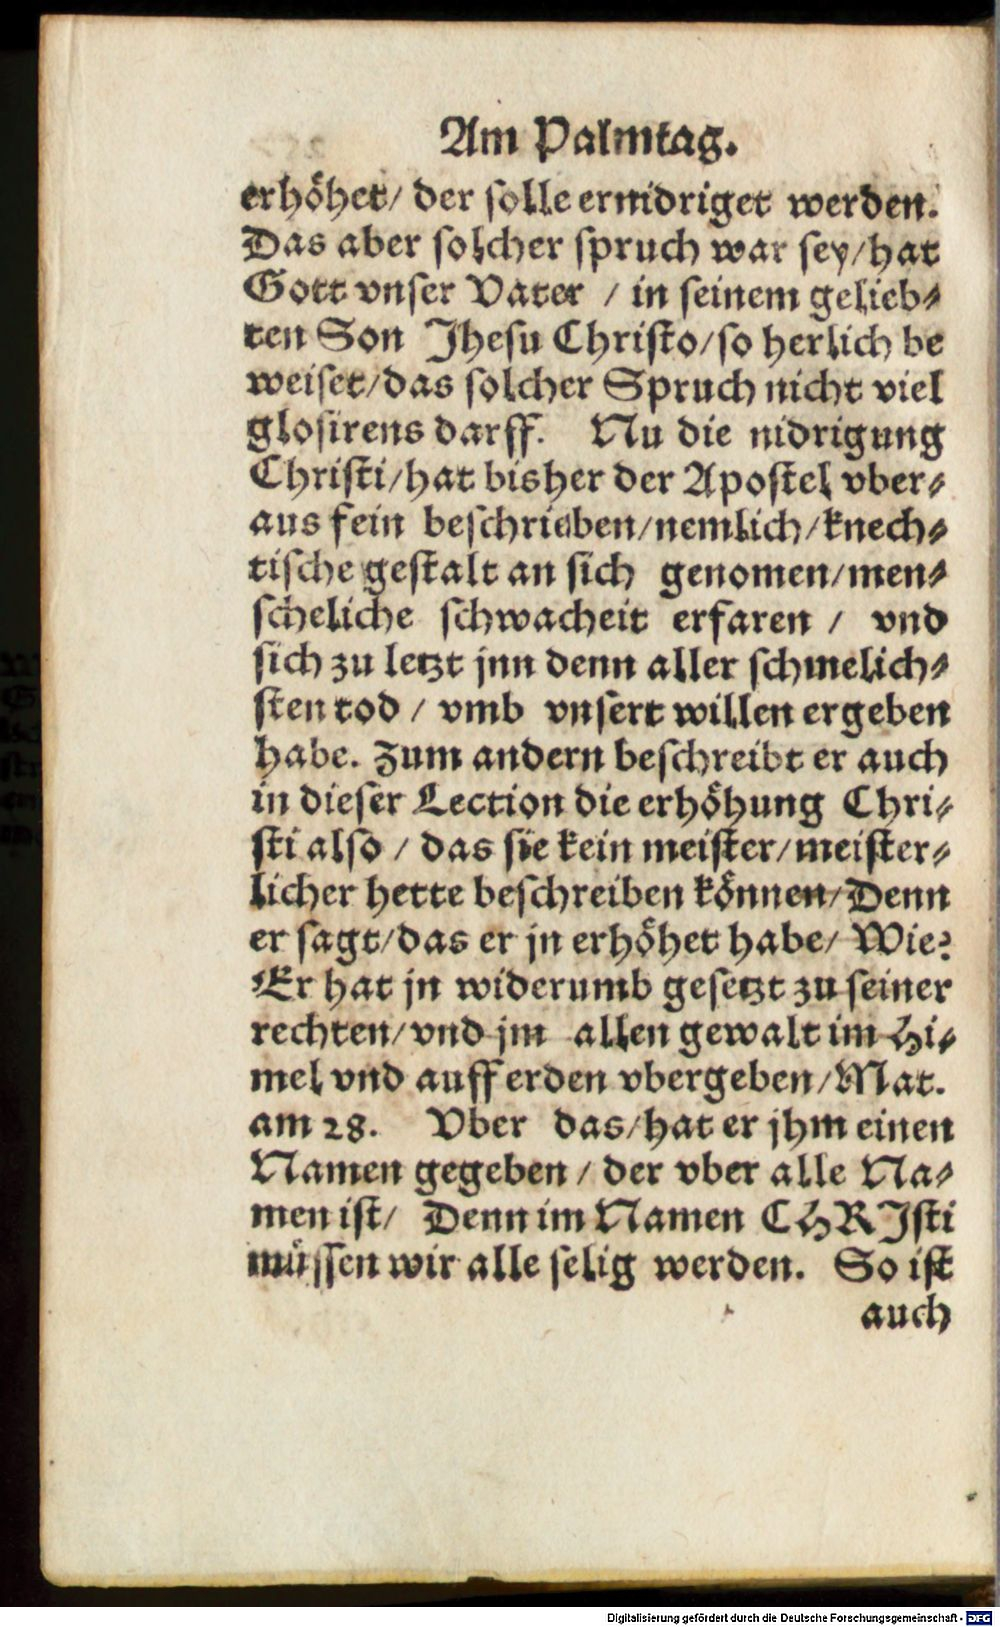 Am Palmtag.
erhöhet/ der solle ernidriget werden.
Das aber solcher spruch war sey/hat
Gott vnser Vater / in seinem gelieb-
ten Son Jhesu Christo/so herlich be
weiset/das solcher Spruch nicht viel
glosirens darff. Nu die nidrigung
Christi/hat bisher der Apostel vber-
aus fein beschrieben/nemlich/knech-
tische gestalt an sich genomen/men-
scheliche schwacheit erfaren / vnd
sich zu letzt jnn denn aller schmelich-
sten tod / vmb vnsert willen ergeben
habe. Zum andern beschreibt er auch
in dieser Lection die erhöhung Chri-
sti also / das sie kein meister/meister-
licher hette beschreiben können/Denn
er sagt/das er jn erhöhet habe/ Wie?
Er hat jn widerumb gesetzt zu seiner
rechten/vnd jm allen gewalt im Hi-
mel vnd auff erden vbergeben/Mat.
am 28. Vber das/hat er jhm einen
Namen gegeben / der vber alle Na-
men ist/ Denn im Namen CHRJsti
müssen wir alle selig werden. So ist
auch
Digitalisierung gefördert durch die Deutsche Forschungsgemeinschaft - DFG